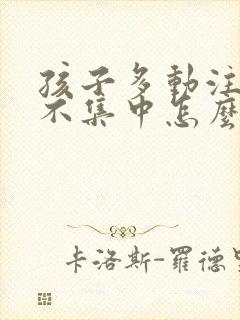 孩子多動注
不集中怎麼
卡洛斯-羅德里